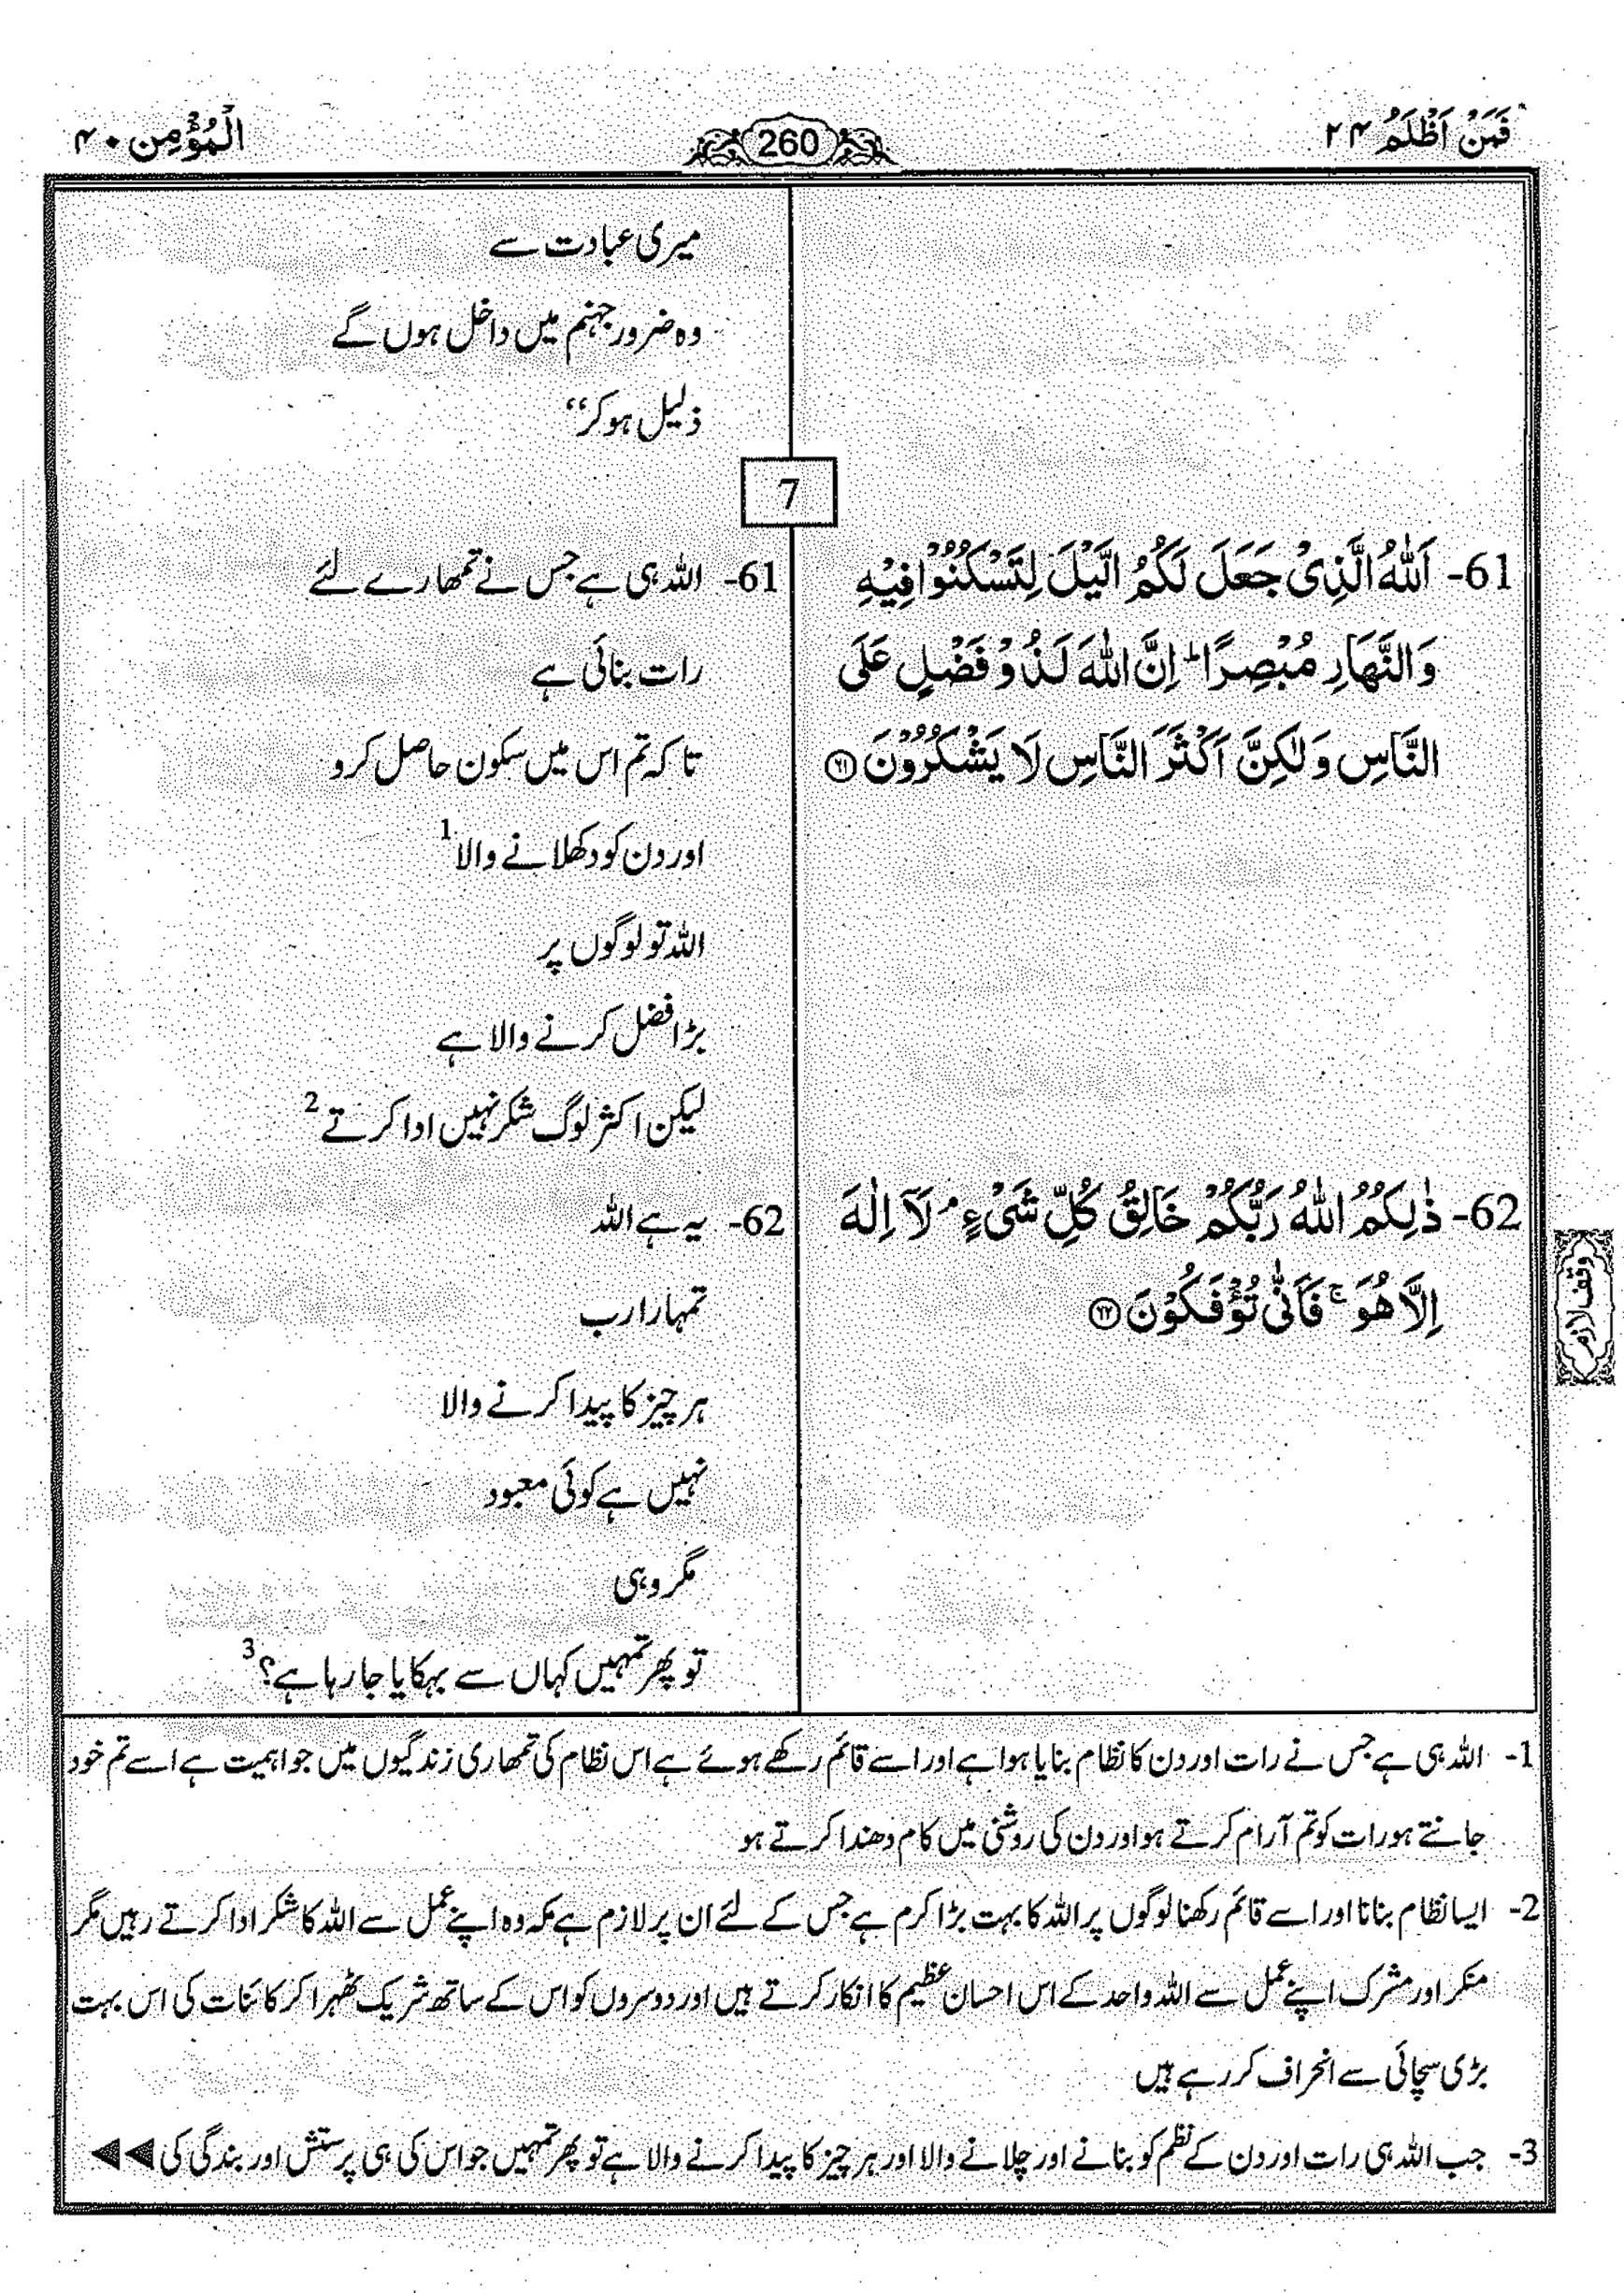 فَمَنْ اَظْلَمُ ۲۴
260
الْمُؤْمِن ۴۰
میری عبادت سے
وہ ضرور جہنم میں داخل ہوں گے
ذلیل ہو کر“
7
61- اَللّٰهُ الَّذِیْ جَعَلَ لَكُمُ الَّیْلَ لِتَسْكُنُوْا فِیْهِ
وَ النَّهَارِ مُبْصِرًا ؕ اِنَّ اللّٰهَ لَذُوْ فَضْلٍ عَلَی
النَّاسِ وَ لٰكِنَّ اَكْثَرَ النَّاسِ لَا یَشْكُرُوْنَ ﴿۶۱﴾
61- اللہ ہی ہے جس نے تمھارے لئے
رات بنائی ہے
تاکہ تم اس میں سکون حاصل کرو
اور دن کو دکھلانے والا 1
اللہ تو لوگوں پر
بڑا فضل کرنے والا ہے
لیکن اکثر لوگ شکر نہیں ادا کرتے 2
62- ذٰلِكُمُ اللّٰهُ رَبُّكُمْ خَالِقُ كُلِّ شَیْءٍ ۘ لَاۤ اِلٰهَ
اِلَّا هُوَ ۚ فَاَنّٰی تُؤْفَكُوْنَ ﴿۶۲﴾
وقف لازم
62- یہ ہے اللہ
تمہارا رب
ہر چیز کا پیدا کرنے والا
نہیں ہے کوئی معبود
مگر وہی
تو پھر تمہیں کہاں سے بہکایا جا رہا ہے؟ 3
1- اللہ ہی ہے جس نے رات اور دن کا نظام بنایا ہوا ہے اور اسے قائم رکھے ہوئے ہے اس نظام کی تمھاری زندگیوں میں جو اہمیت ہے اسے تم خود
جانتے ہو رات کو تم آرام کرتے ہو اور دن کی روشنی میں کام دھندا کرتے ہو
2- ایسا نظام بنانا اور اسے قائم رکھنا لوگوں پر اللہ کا بہت بڑا کرم ہے جس کے لئے ان پر لازم ہے کہ وہ اپنے عمل سے اللہ کا شکر ادا کرتے رہیں مگر
منکر اور مشرک اپنے عمل سے اللہ واحد کے اس احسان عظیم کا انکار کرتے ہیں اور دوسروں کو اس کے ساتھ شریک ٹھہرا کر کائنات کی اس بہت
بڑی سچائی سے انحراف کر رہے ہیں
3- جب اللہ ہی رات اور دن کے نظم کو بنانے اور چلانے والا اور ہر چیز کا پیدا کرنے والا ہے تو پھر تمہیں جو اس کی ہی پرستش اور بندگی کی ◄◄